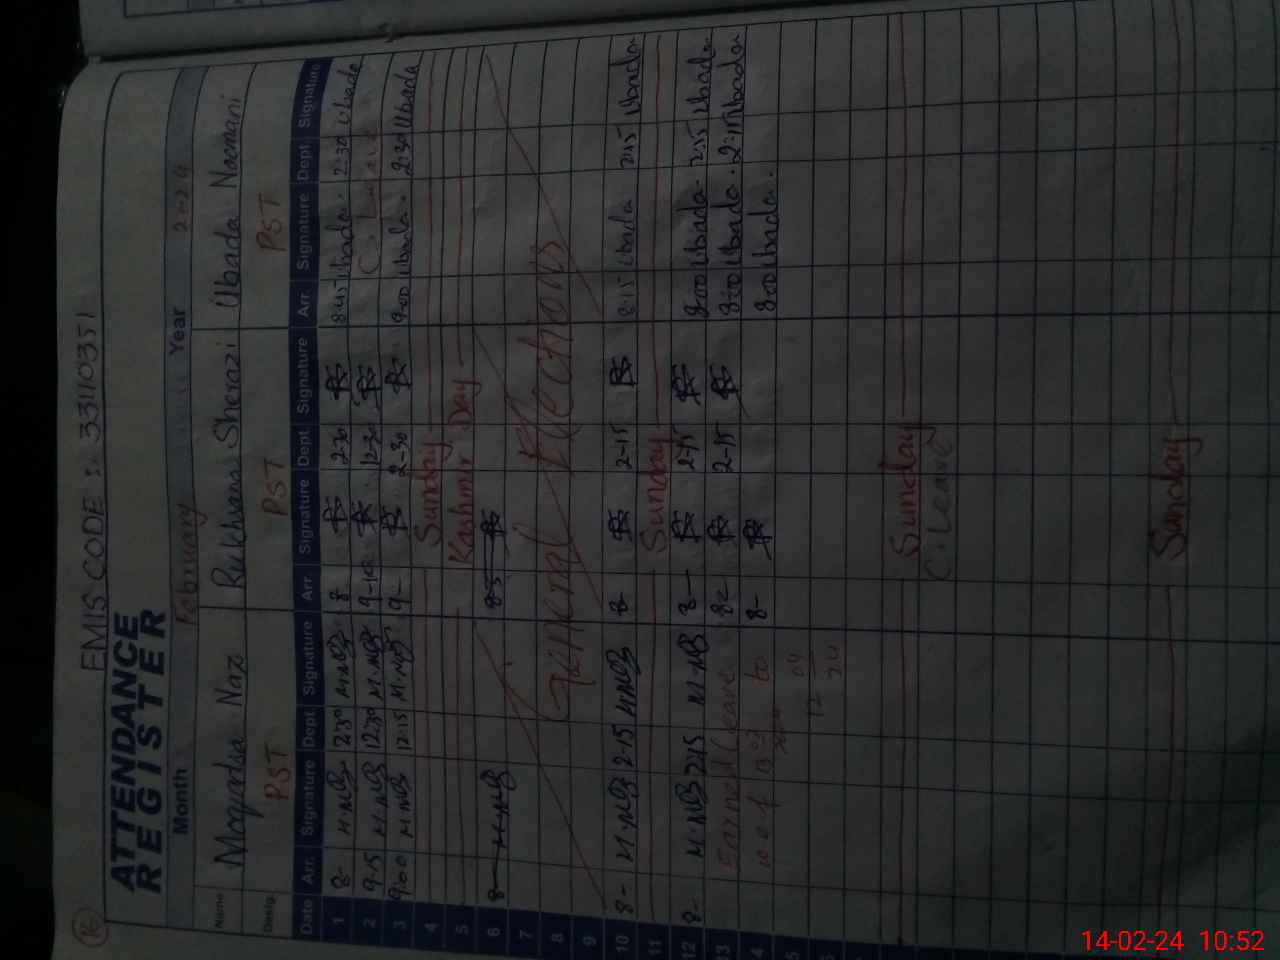 16
EMIS CODE : 33110351
ATTENDANCE
REGISTER
Month February Year 2024
Name Moqadsa Naz Rukhsana Sherazi Ubada Noomani
Desig. PST PST PST
Date Arr. Signature Dept. Signature Arr. Signature Dept. Signature Arr. Signature Dept. Signature
1 8- M.NAZ 2:30 M.NAZ 8 2-30 8:45 Ubada. 2:30 Ubada
2 9-15 M.NAZ 12:30 M.NAZ 9-10 12-30 C Leave
3 9:00 M.NAZ 12:15 M.NAZ 9- 2-30 9:00 Ubada. 2:30 Ubada
4 Sunday
5 Kashmir Day
6 8 M.NAZ 8-5
7
8 General Elections
9
10 8- M.NAZ 2-15 M.NAZ 8- 2-15 8:15 Ubada 2:15 Ubada
11 Sunday
12 8- M.NAZ 2:15 M.NAZ 8- 2-15 8:00 Ubada. 2:15 Ubada.
13 Earned Leave 8 2-15 8:00 Ubada. 2:15 Ubada.
4 w.e.f 13 02 to 8- 8:00 Ubada.
5 12 04 24
Sunday
C. Leave
Sunday
14-02-24 10:52